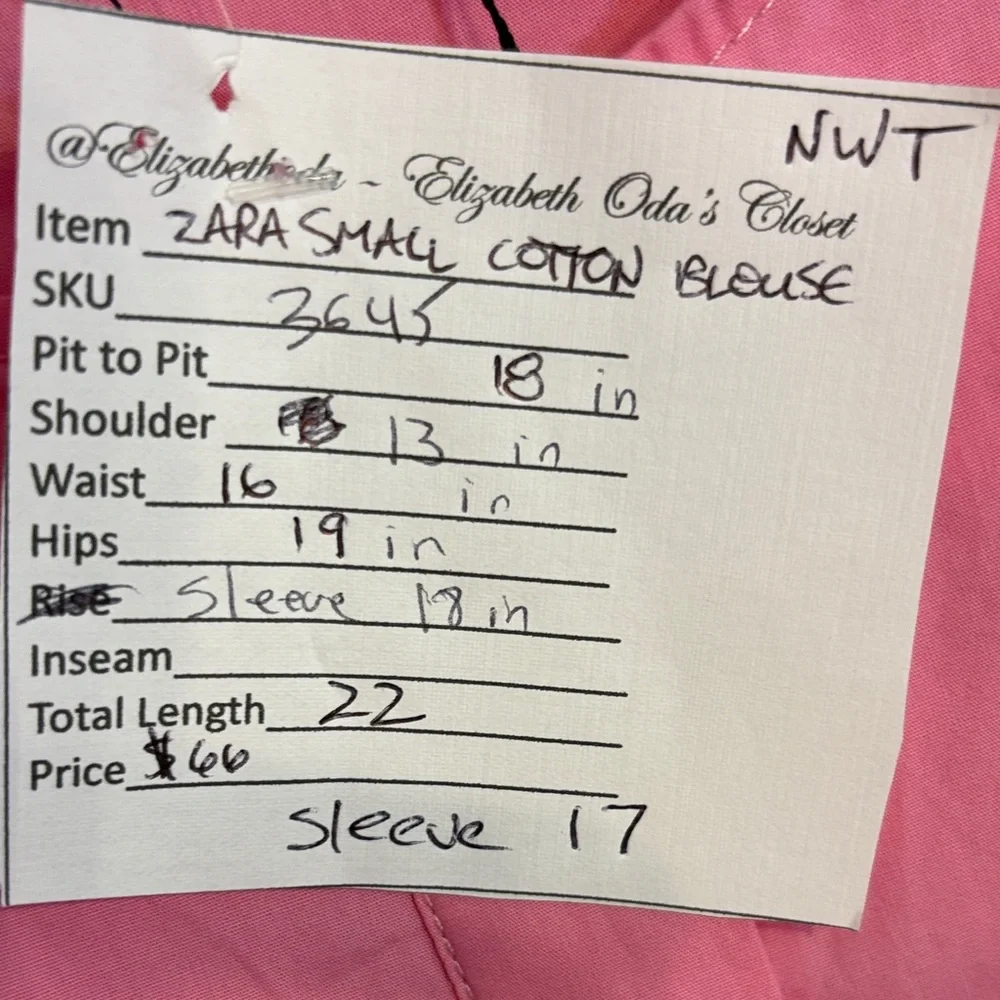 NWT
@Elizabethoda ~ Elizabeth Oda's Closet
Item ZARA SMALL COTTON BLOUSE
SKU 3645
Pit to Pit 18 in
Shoulder 13 in
Waist 16 in
Hips 19 in
Rise Sleeve 18 in
Inseam
Total Length 22
Price $66
Sleeve 17